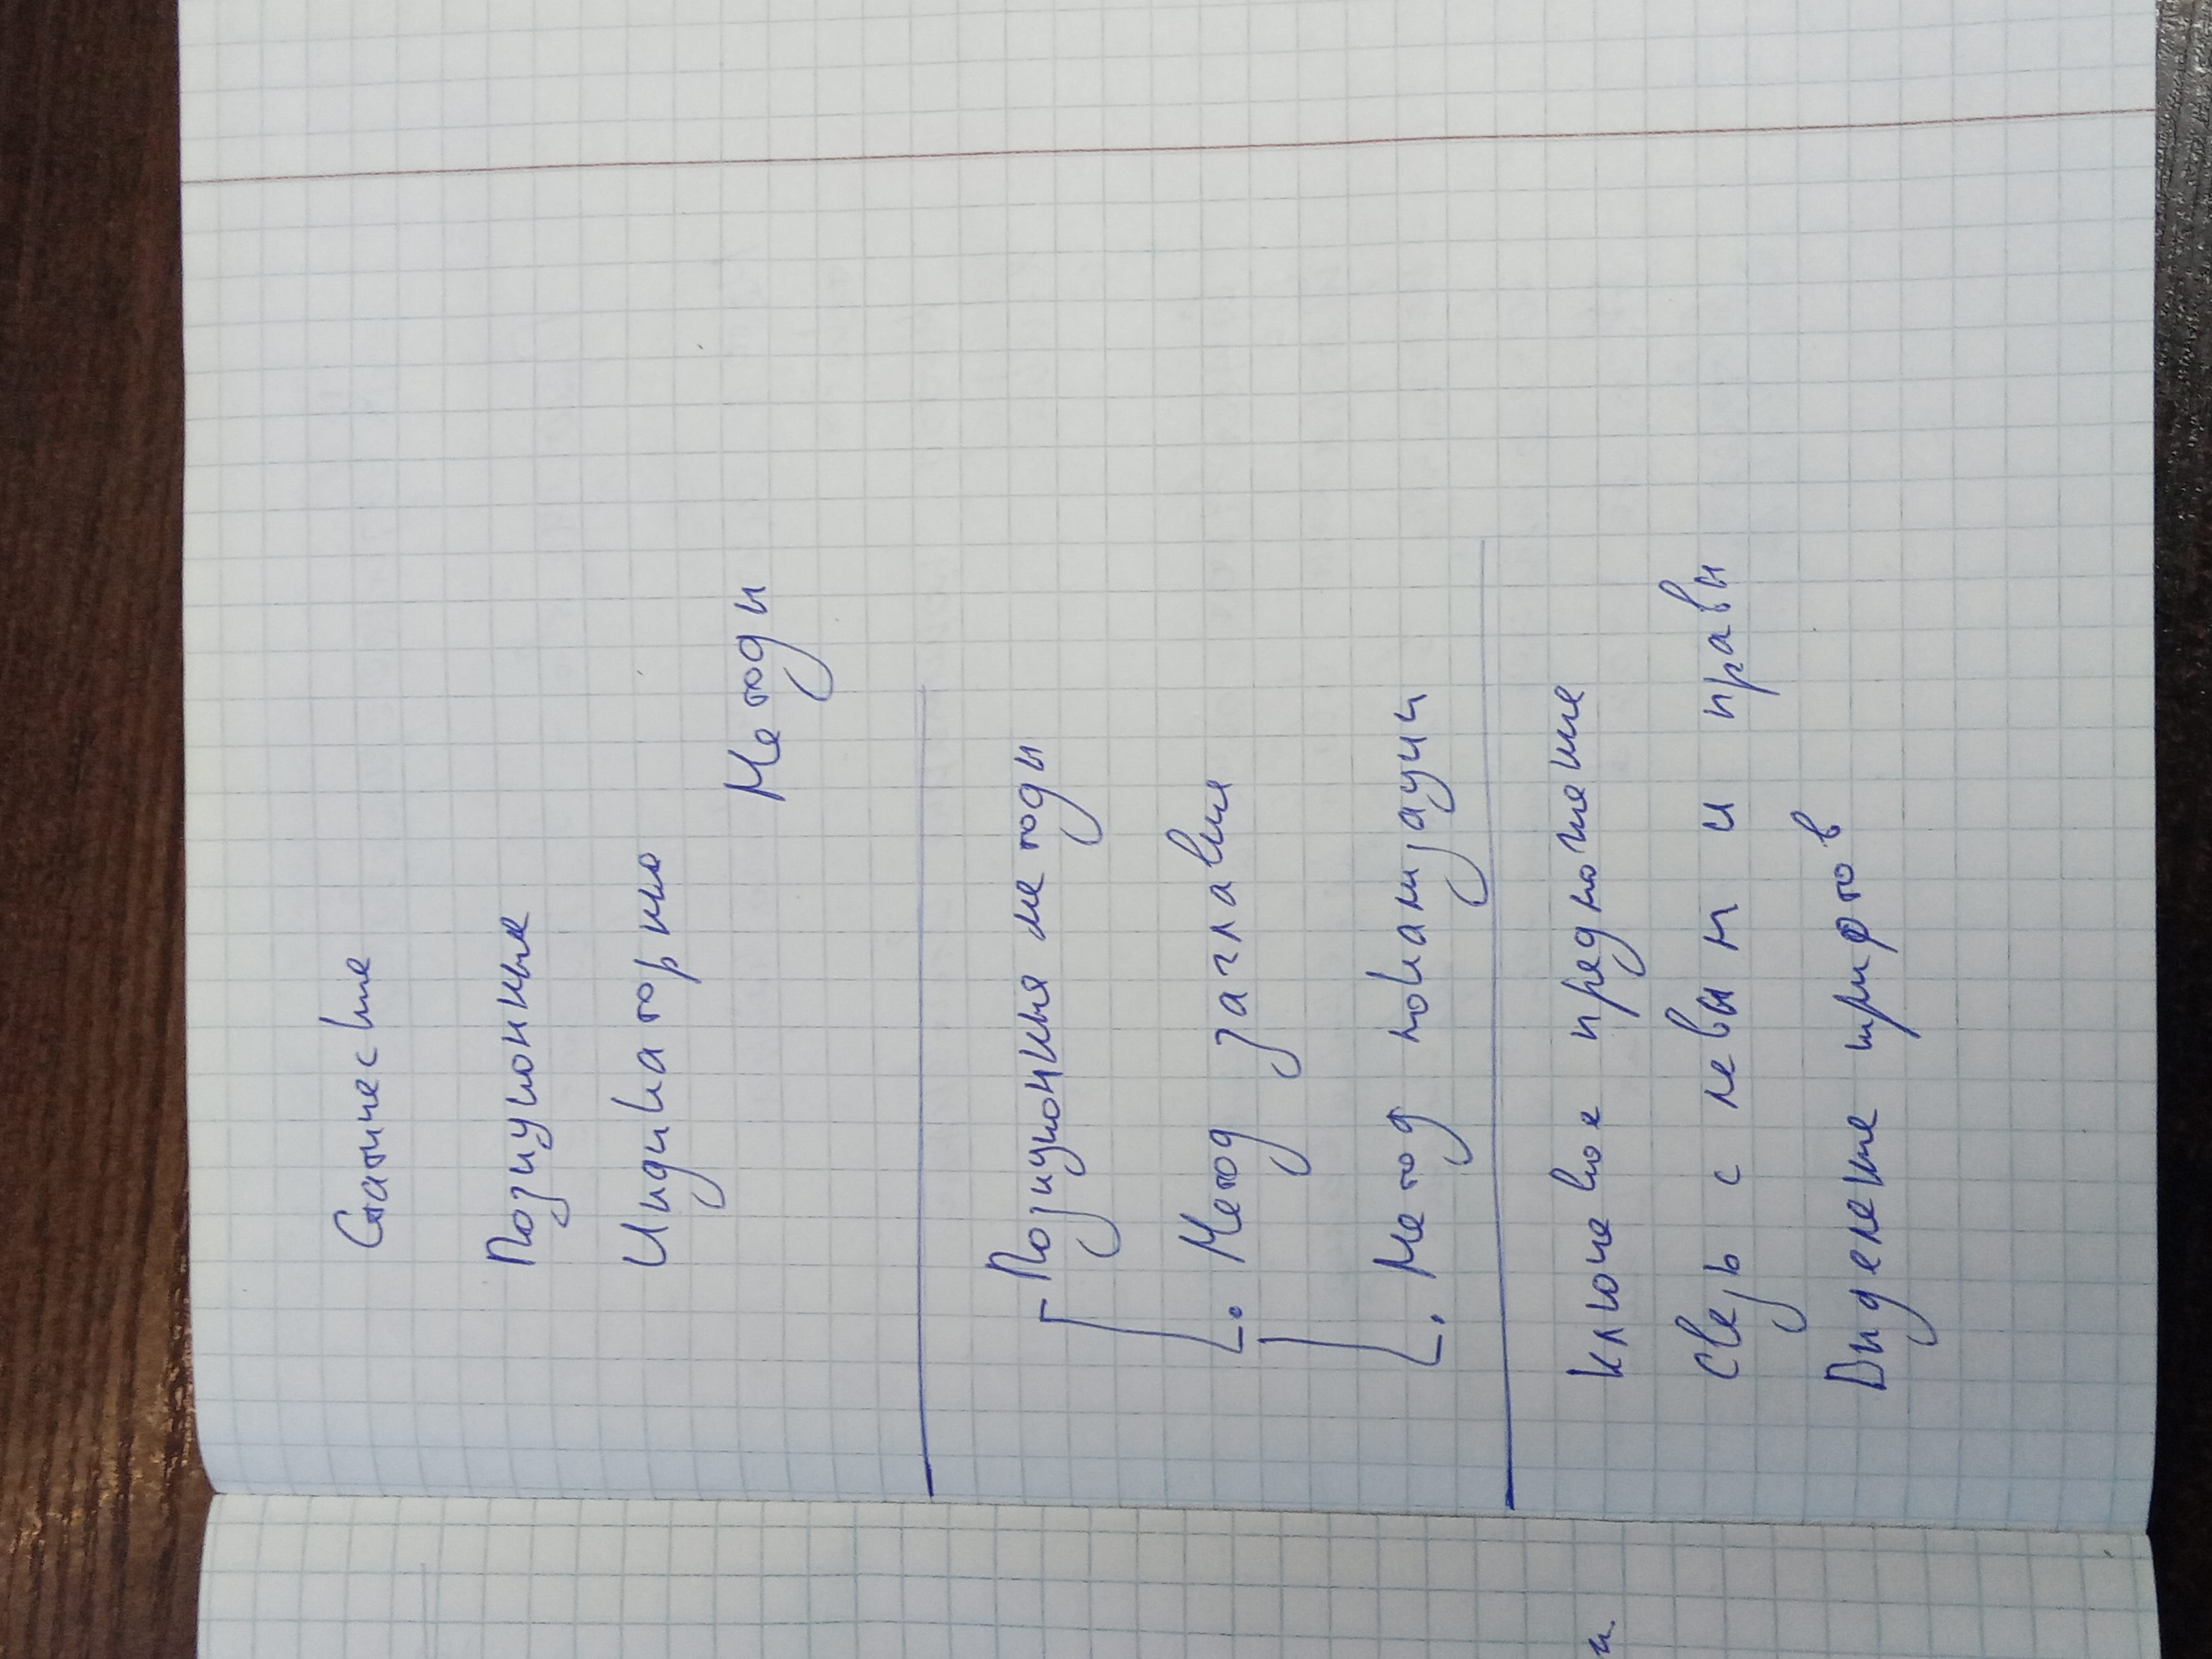 Статические
Позиционные
Индикаторные
Методы
Позиционные методы
Метод заглавие
Метод локализации
Ключевое предложение
Связь с левым и правы
Выделение шрифтов